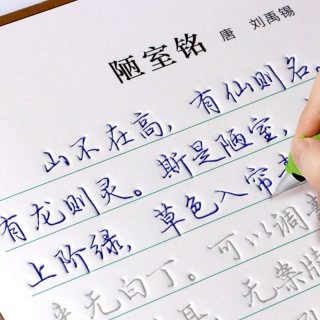 陋室铭 唐 刘禹锡
山不在高，有仙则名。
有龙则灵。斯是陋室，
上阶绿，草色入帘
无白丁。可以调
无案牍